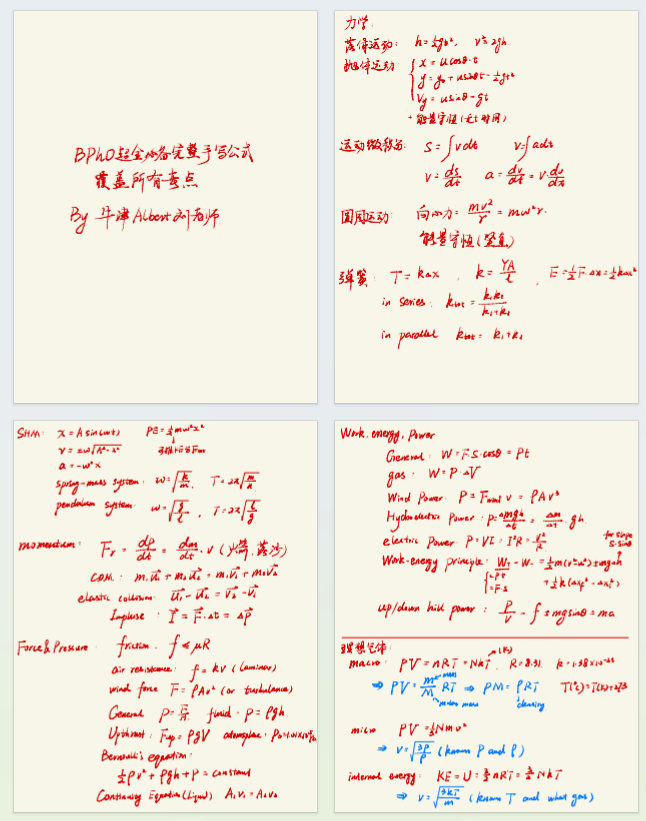 BPhO超全必备完整手写公式
覆盖所有考点
By 牛津Albert刘老师
力学:
落体运动: h=½gt², v²=2gh
抛体运动 { x = ucosθ·t
y = y₀ + usinθt - ½gt²
Vy = usinθ - gt
+ 能量守恒(无t时间)
运动微积分: S=∫vdt v=∫adt
v = ds/dt a = dv/dt = v·dv/dx
圆周运动: 向心力 = mv²/r = mω²r.
能量守恒(竖直)
弹簧: T = kΔx , k = YA/l , E=½F·Δx=½kΔx²
in series: ktot = k₁k₂/(k₁+k₂)
in parallel ktot = k₁+k₂
SHM: x = A sin(ωt) PE=½mω²x²
v = ±ω√(A²-x²)
a = -ω²x
spring-mass system: ω=√(k/m), T=2π√(m/k)
pendulum system: ω=√(g/l), T=2π√(l/g)
momentum: Fr = dp/dt = dm/dt · v (火箭,落沙)
COM: m₁u₁+m₂u₂ = m₁v₁+m₂v₂
elastic collision: u₁-u₂ = v₂-v₁
Impluse: I = F·Δt = Δp
Force & Pressure: friction. f ≤ μR
air resistance: f = kv (laminar)
wind force F = ρAv² (or turbulance)
General P = F/A fluid: P = ρgh.
Upthrust: Fup = ρgV atomosphere: P₀=1.01×10⁵Pa
Bernoulli's equation:
½ρv² + ρgh + P = constant
Continuity Equation (liquid) A₁V₁ = A₂V₂
Work, energy, Power
General: W = F·S·cosθ = Pt
gas: W = P·ΔV
Wind Power: P = Fwind v = ρAv³
Hydroelectric Power: P = Δmgh/Δt = Δm/Δt · gh
electric Power: P = VI = I²R = V²/R
for slope S·sinθ
Work-energy principle: W₊ - W₋ = ½m(v²-u²) ± mgΔh
{ =Pt
=F·S
+½k(Δx₂² - Δx₁²)
up/down hill power: P/V - f ± mgsinθ = ma
理想气体:
macro: PV = nRT = NkT (K) R=8.31. k=1.38×10⁻²³
⇒ PV = m/M RT ⇒ PM = ρRT T(℃)=T(K)+273
mass
molar mass density
micro PV = ⅓Nmv²
⇒ v=√(3P/ρ) (known P and ρ)
internal energy: KE = U = 3/2 nRT = 3/2 NkT
⇒ v=√(3kT/m) (known T and what gas)